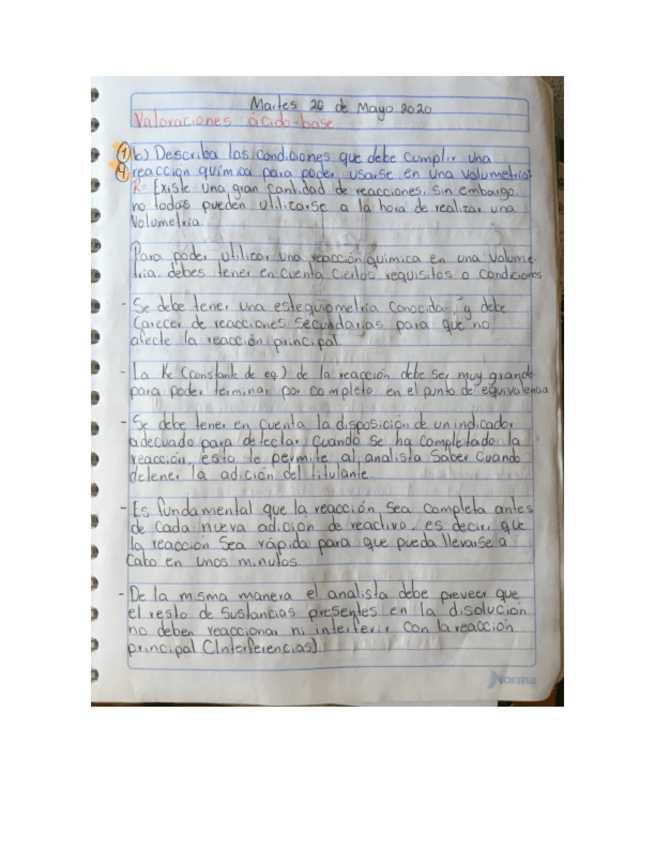 Martes 26 de Mayo 2020
Valoraciones ácido-base
1 b) Describa las condiciones que debe cumplir una
4 reacción química para poder usarse en una volumetria.
R= Existe una gran cantidad de reacciones, sin embargo,
no todas pueden utilizarse a la hora de realizar una
Volumetria.
Para poder utilizar una reacción química en una volume-
tria. debes tener en cuenta ciertos requisitos o condiciones
- Se debe tener una estequiometria conocida, y debe
carecer de reacciones secundarias para que no
afecte la reacción principal.
- La Ke (constante de eq) de la reacción debe ser muy grande
para poder terminar por completo en el punto de equivalencia
- Se debe tener en cuenta la disposición de un indicador
adecuado para detectar cuando se ha completado la
reacción, esto le permite al analista saber cuando
detener la adición del titulante.
- Es fundamental que la reacción sea completa antes
de cada nueva adicion de reactivo, es decir, que
la reacción sea rápida para que pueda llevarse a
cabo en unos minutos
- De la misma manera el analista debe preveer que
el resto de sustancias presentes en la disolución
no deben reaccionar ni interferir con la reacción
principal (Interferencias).
Norma